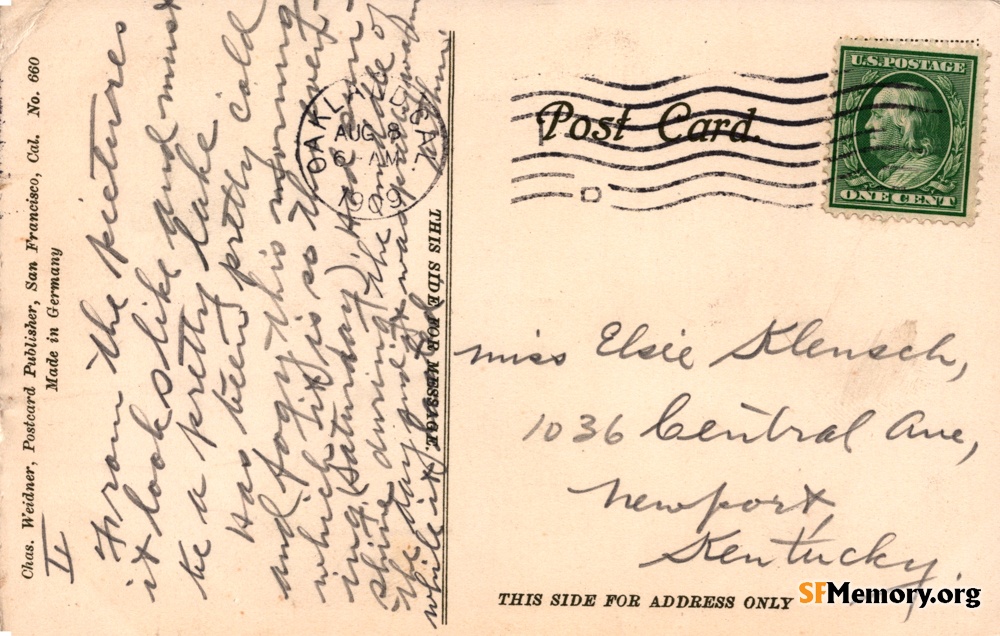 Chas. Weidner, Postcard Publisher, San Francisco, Cal. No. 660
Made in Germany
II
From the pictures
it looks like and must
be a pretty lake
Has been pretty cold
and foggy this morning
which it is so this even-
ing (Saturday), Had sun-
shine during the middle of
the day and it was quite warm
while it
THIS SIDE FOR MESSAGE.
OAKLAND, CAL.
AUG 8
6 AM
1909
Post Card.
U.S. POSTAGE
ONE CENT
Miss Elsie Klensch,
1036 Central Ave,
Newport,
Kentucky.
THIS SIDE FOR ADDRESS ONLY
SFMemory.org